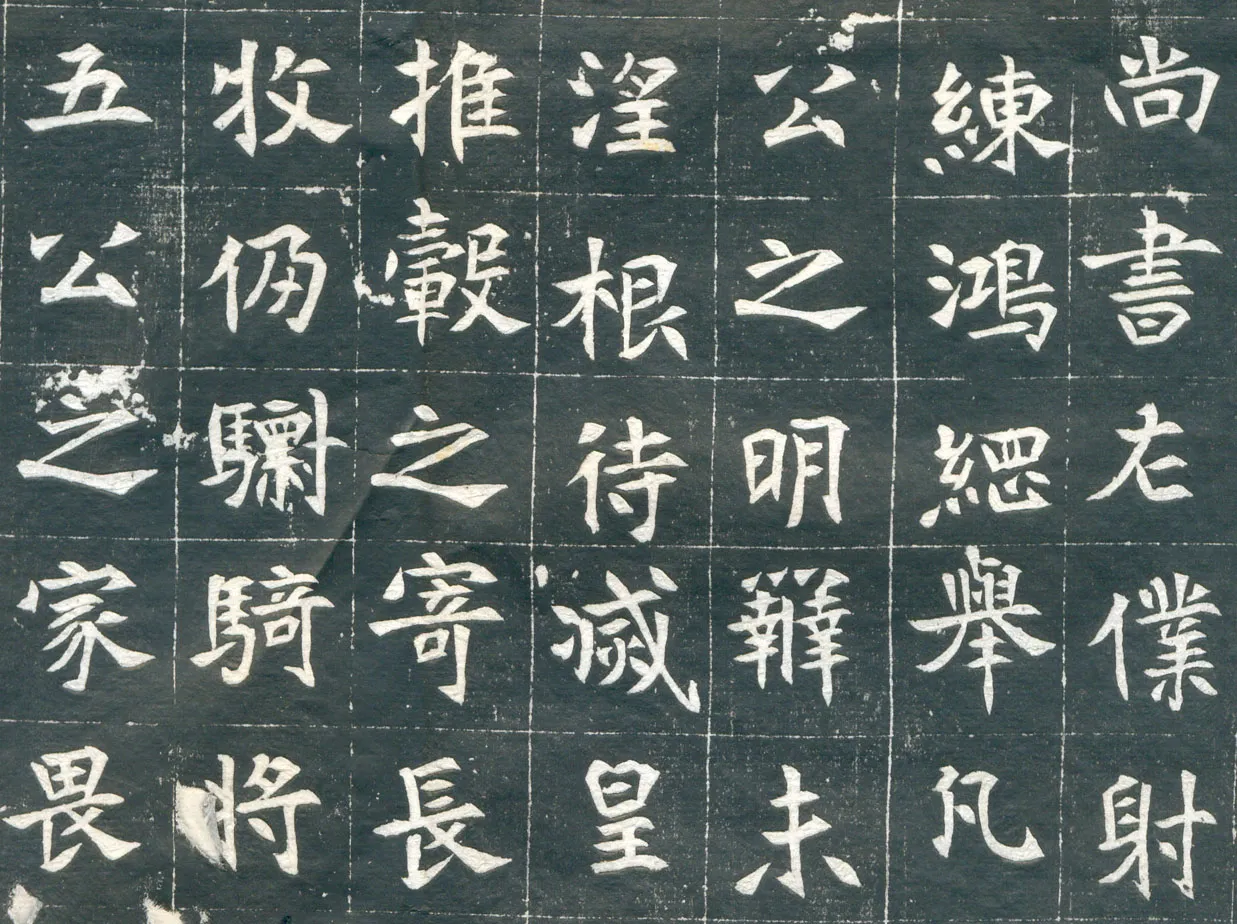 尚書左僕射
練鴻緫舉凡
公之明辨未
湼根待滅皇
推轂之寄長
牧仍騎將
五公之家畏